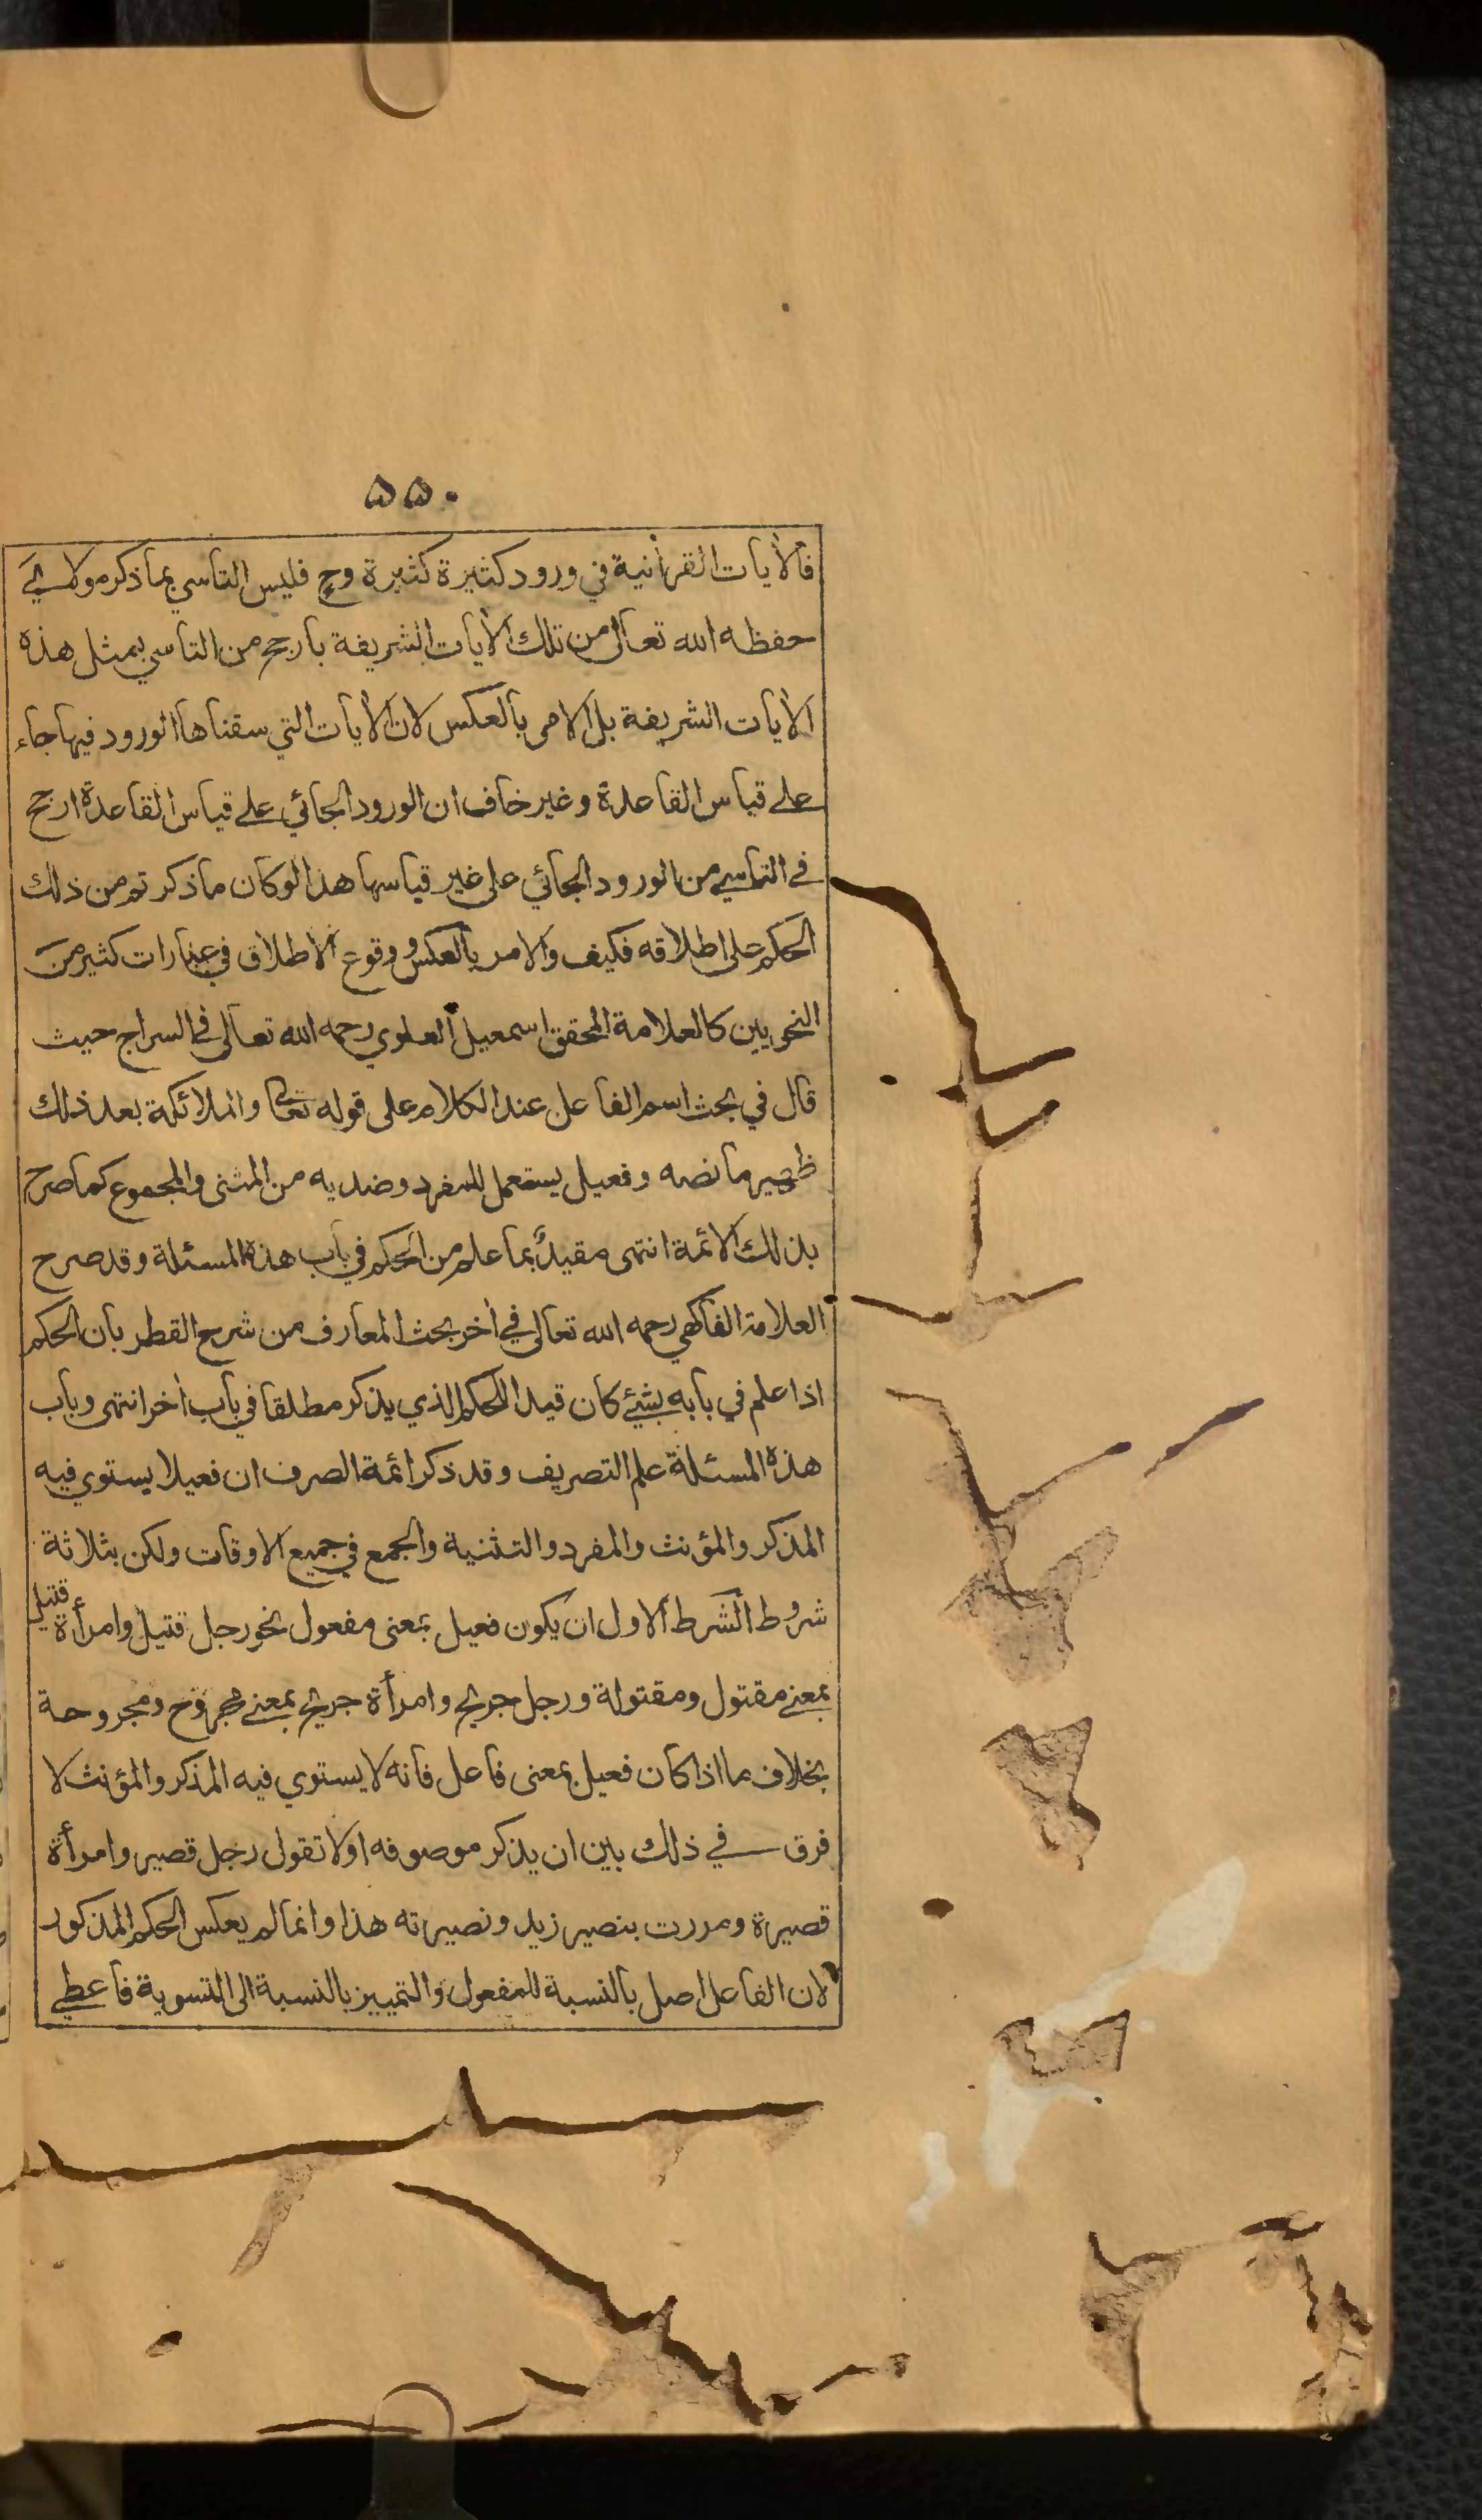 ۵۵۰
فالأيات القرأنية في ورود كثيرة كثيرة وح فليس التاسي بما ذكر مولائي
حفظه الله تعالى من تلك الأيات الشريفة بارجح من التاسي بمثل هذه
الأيات الشريفة بل الامر بالعكس لان الأيات التي سقناها الورود فيها جاء
على قياس القاعدة وغير خاف ان الورود الجائي على قياس القاعدة ارجح
في التاسي من الورود الجائي على غير قياسها هذا لو كان ما ذكر تم من ذلك
الحكم على اطلاقه فكيف والامر بالعكس ووقوع الاطلاق في عبارات كثير من
النحويين كالعلامة المحقق اسمعيل العلوي رحمه الله تعالى في السراج حيث
قال في بحث اسم الفاعل عند الكلام على قوله تعالى والملائكة بعد ذلك
ظهير ما نصه وفعيل يستعمل للمفرد وضديه من المثنى والمجموع كما صرح
بذلك الائمة انتهى مقيدٌ بما علم من الحكم في باب هذه المسئلة وقد صرح
العلامة الفاكهي رحمه الله تعالى في أخر بحث المعارف من شرح القطر بان الحكم
اذا علم في بابه بشئ كان قيدا للحكم الذي يذكر مطلقا في باب أخر انتهى وباب
هذه المسئلة علم التصريف وقد ذكر ائمة الصرف ان فعيلا يستوي فيه
المذكر والمؤنث والمفرد والتثنية والجمع في جميع الاوقات ولكن بثلاثة
شروط الشرط الاول ان يكون فعيل بمعنى مفعول نحو رجل قتيل وامرأة قتيل
بمعنے مقتول ومقتولة ورجل جريح وامرأة جريح بمعنے مجروح ومجروحة
بخلاف ما اذا كان فعيل بمعنى فاعل فانه لا يستوي فيه المذكر والمؤنث لا
فرق في ذلك بين ان يذكر موصوفه او لا تقول رجل قصير وامرأة
قصيرة ومررت بنصير زيد ونصيرته هذا وانما لم يعكس الحكم المذكور
لان الفاعل اصل بالنسبة للمفعول والتمييز بالنسبة الى التسوية فاعطي